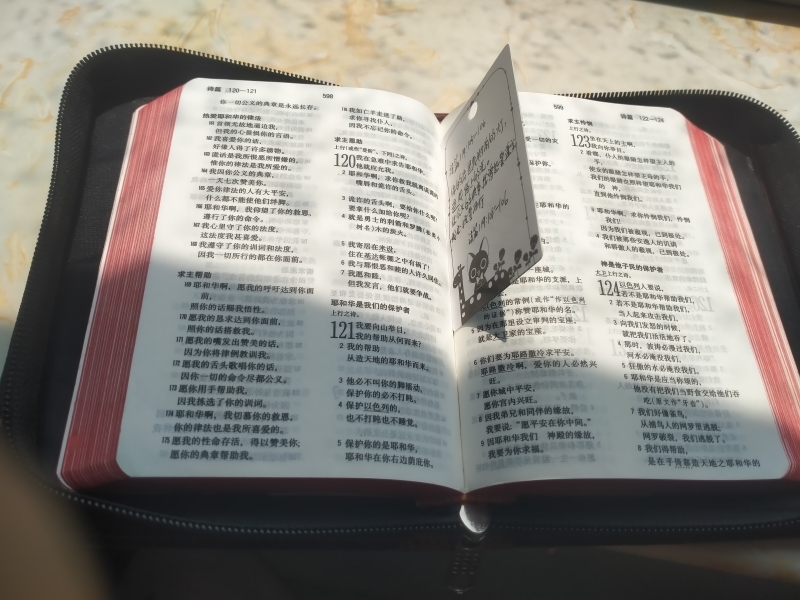 诗篇 120—121
598
你一切公义的典章是永远长存。
热爱耶和华的律法
161 首领无故地逼迫我,
但我的心畏惧你的言语。
162 我喜爱你的话,
好像人得了许多掳物。
163 谎话是我所恨恶所憎嫌的,
惟你的律法是我所爱的。
164 我因你公义的典章,
一天七次赞美你。
165 爱你律法的人有大平安,
什么都不能使他们绊脚。
166 耶和华啊,我仰望了你的救恩,
遵行了你的命令。
167 我心里守了你的法度,
这法度我甚喜爱。
168 我遵守了你的训词和法度,
因我一切所行的都在你面前。
求主帮助
169 耶和华啊,愿我的呼吁达到你面
前,
照你的话赐我悟性。
170 愿我的恳求达到你面前,
照你的话搭救我。
171 愿我的嘴发出赞美的话,
因你将律例教训我。
172 愿我的舌头歌唱你的话,
因你一切的命令尽都公义。
173 愿你用手帮助我,
因我拣选了你的训词。
174 耶和华啊,我切慕你的救恩,
你的律法也是我所喜爱的。
175 愿我的性命存活,得以赞美你;
愿你的典章帮助我。
176 我如亡羊走迷了路,
求你寻找仆人,
因我不忘记你的命令。
求主恩助
上行(或作“登阶”,下同)之诗。
120 我在急难中求告耶和华,
他就应允我。
2 耶和华啊,求你救我脱离说谎的
嘴唇和诡诈的舌头。
3 诡诈的舌头啊,要给你什么呢?
要拿什么加给你呢?
4 就是勇士的利箭和罗腾(小
树名)木的炭火。
5 我寄居在米设,
住在基达帐棚之中有祸了!
6 我与那恨恶和睦的人许久同住。
7 我愿和睦,
但我发言,他们就要争战。
耶和华是我们的保护者
上行之诗。
121 我要向山举目,
我的帮助从何而来?
2 我的帮助
从造天地的耶和华而来。
3 他必不叫你的脚摇动,
保护你的必不打盹。
4 保护以色列的,
也不打盹也不睡觉。
5 保护你的是耶和华,
耶和华在你右边荫庇你。
599
诗篇 122—124
座城。
以色列的常例(或作“作以色列
的证据”)称赞耶和华的名。
5 因为在那里设立审判的宝座,
就是大卫家的宝座。
6 你们要为耶路撒冷求平安。
耶路撒冷啊,爱你的人必然兴
旺。
7 愿你城中平安,
愿你宫内兴旺。
8 因我弟兄和同伴的缘故,
我要说:“愿平安在你中间。”
9 因耶和华我们 神殿的缘故,
我要为你求福。
求主怜悯
上行之诗。
123 坐在天上的主啊,
我向你举目。
2 看哪,仆人的眼睛怎样望主人的
手,
使女的眼睛怎样望主母的手,
我们的眼睛也照样望耶和华我们
的 神,
直到他怜悯我们。
3 耶和华啊,求你怜悯我们,怜悯
我们!
因为我们被藐视,已到极处。
4 我们被那些安逸人的讥诮
和骄傲人的藐视,已到极处。
神是他子民的保护者
大卫上行之诗。
124 以色列人要说,
若不是耶和华帮助我们,
2 若不是耶和华帮助我们,
当人起来攻击我们,
3 向我们发怒的时候,
就把我们活活地吞了。
4 那时,波涛必漫过我们,
河水必淹没我们,
5 狂傲的水必淹没我们。
6 耶和华是应当称颂的,
他没有把我们当野食交给他们吞
吃(原文作“牙齿”)。
7 我们好像雀鸟,
从捕鸟人的网罗里逃脱;
网罗破裂,我们逃脱了。
8 我们得帮助,
是在乎倚靠造天地之耶和华的